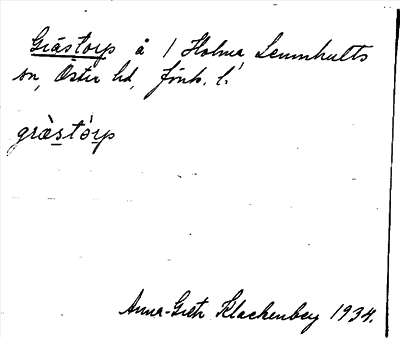 Grästorp å 1 Holma Lemnhults
sn, Östra hd, Jönk. l.
græ̀stór̠p
Anna-Greta Klackenberg 1934.